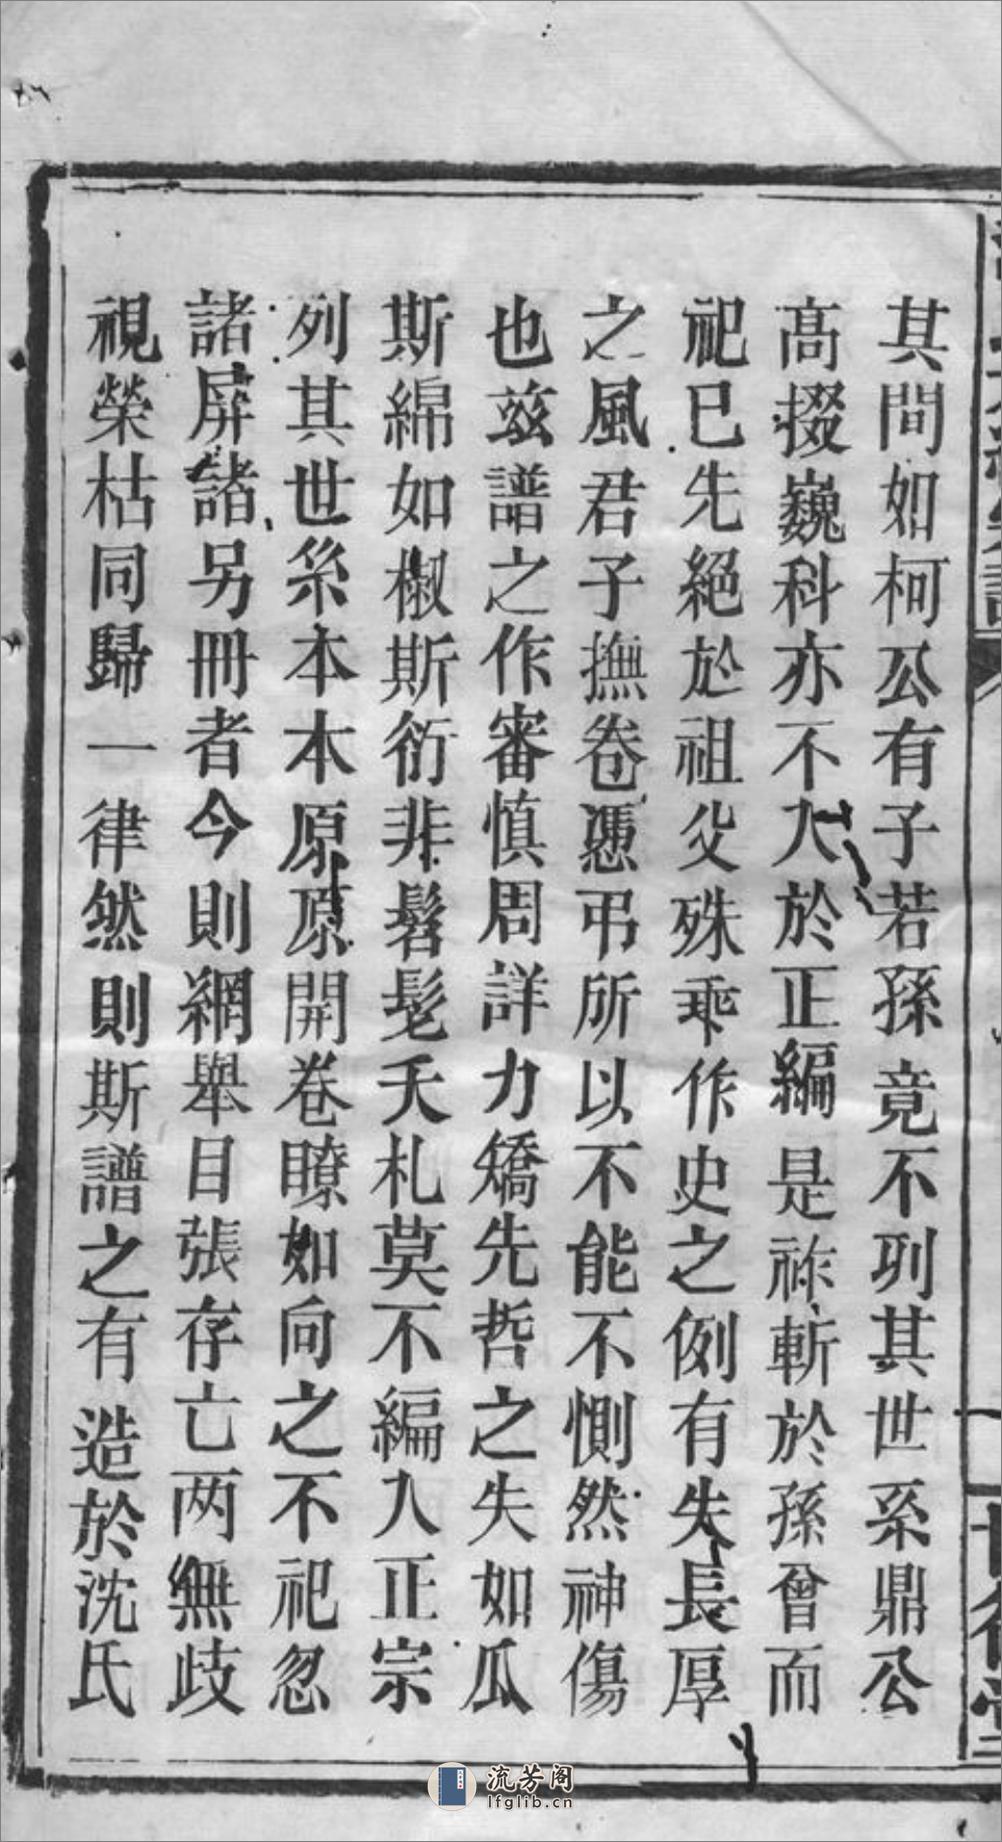 其間如柯公有子若孫竟不列其世系鼎公
高掇巍科亦不入於正編是祢斬於孫曾而
祀已先絕於祖父殊乖作史之例有失長厚
之風君子撫卷憑弔所以不能不惻然神傷
也茲譜之作審慎周詳力矯先哲之失如瓜
斯綿如椒斯衍非髫髦夭札莫不編入正宗
列其世系本本原原開卷瞭如向之不祀忽
諸屏諸另冊者今則網舉目張存亡两無歧
視榮枯同歸一律然則斯譜之有造於沈氏
流芳阁
lfglib.cn